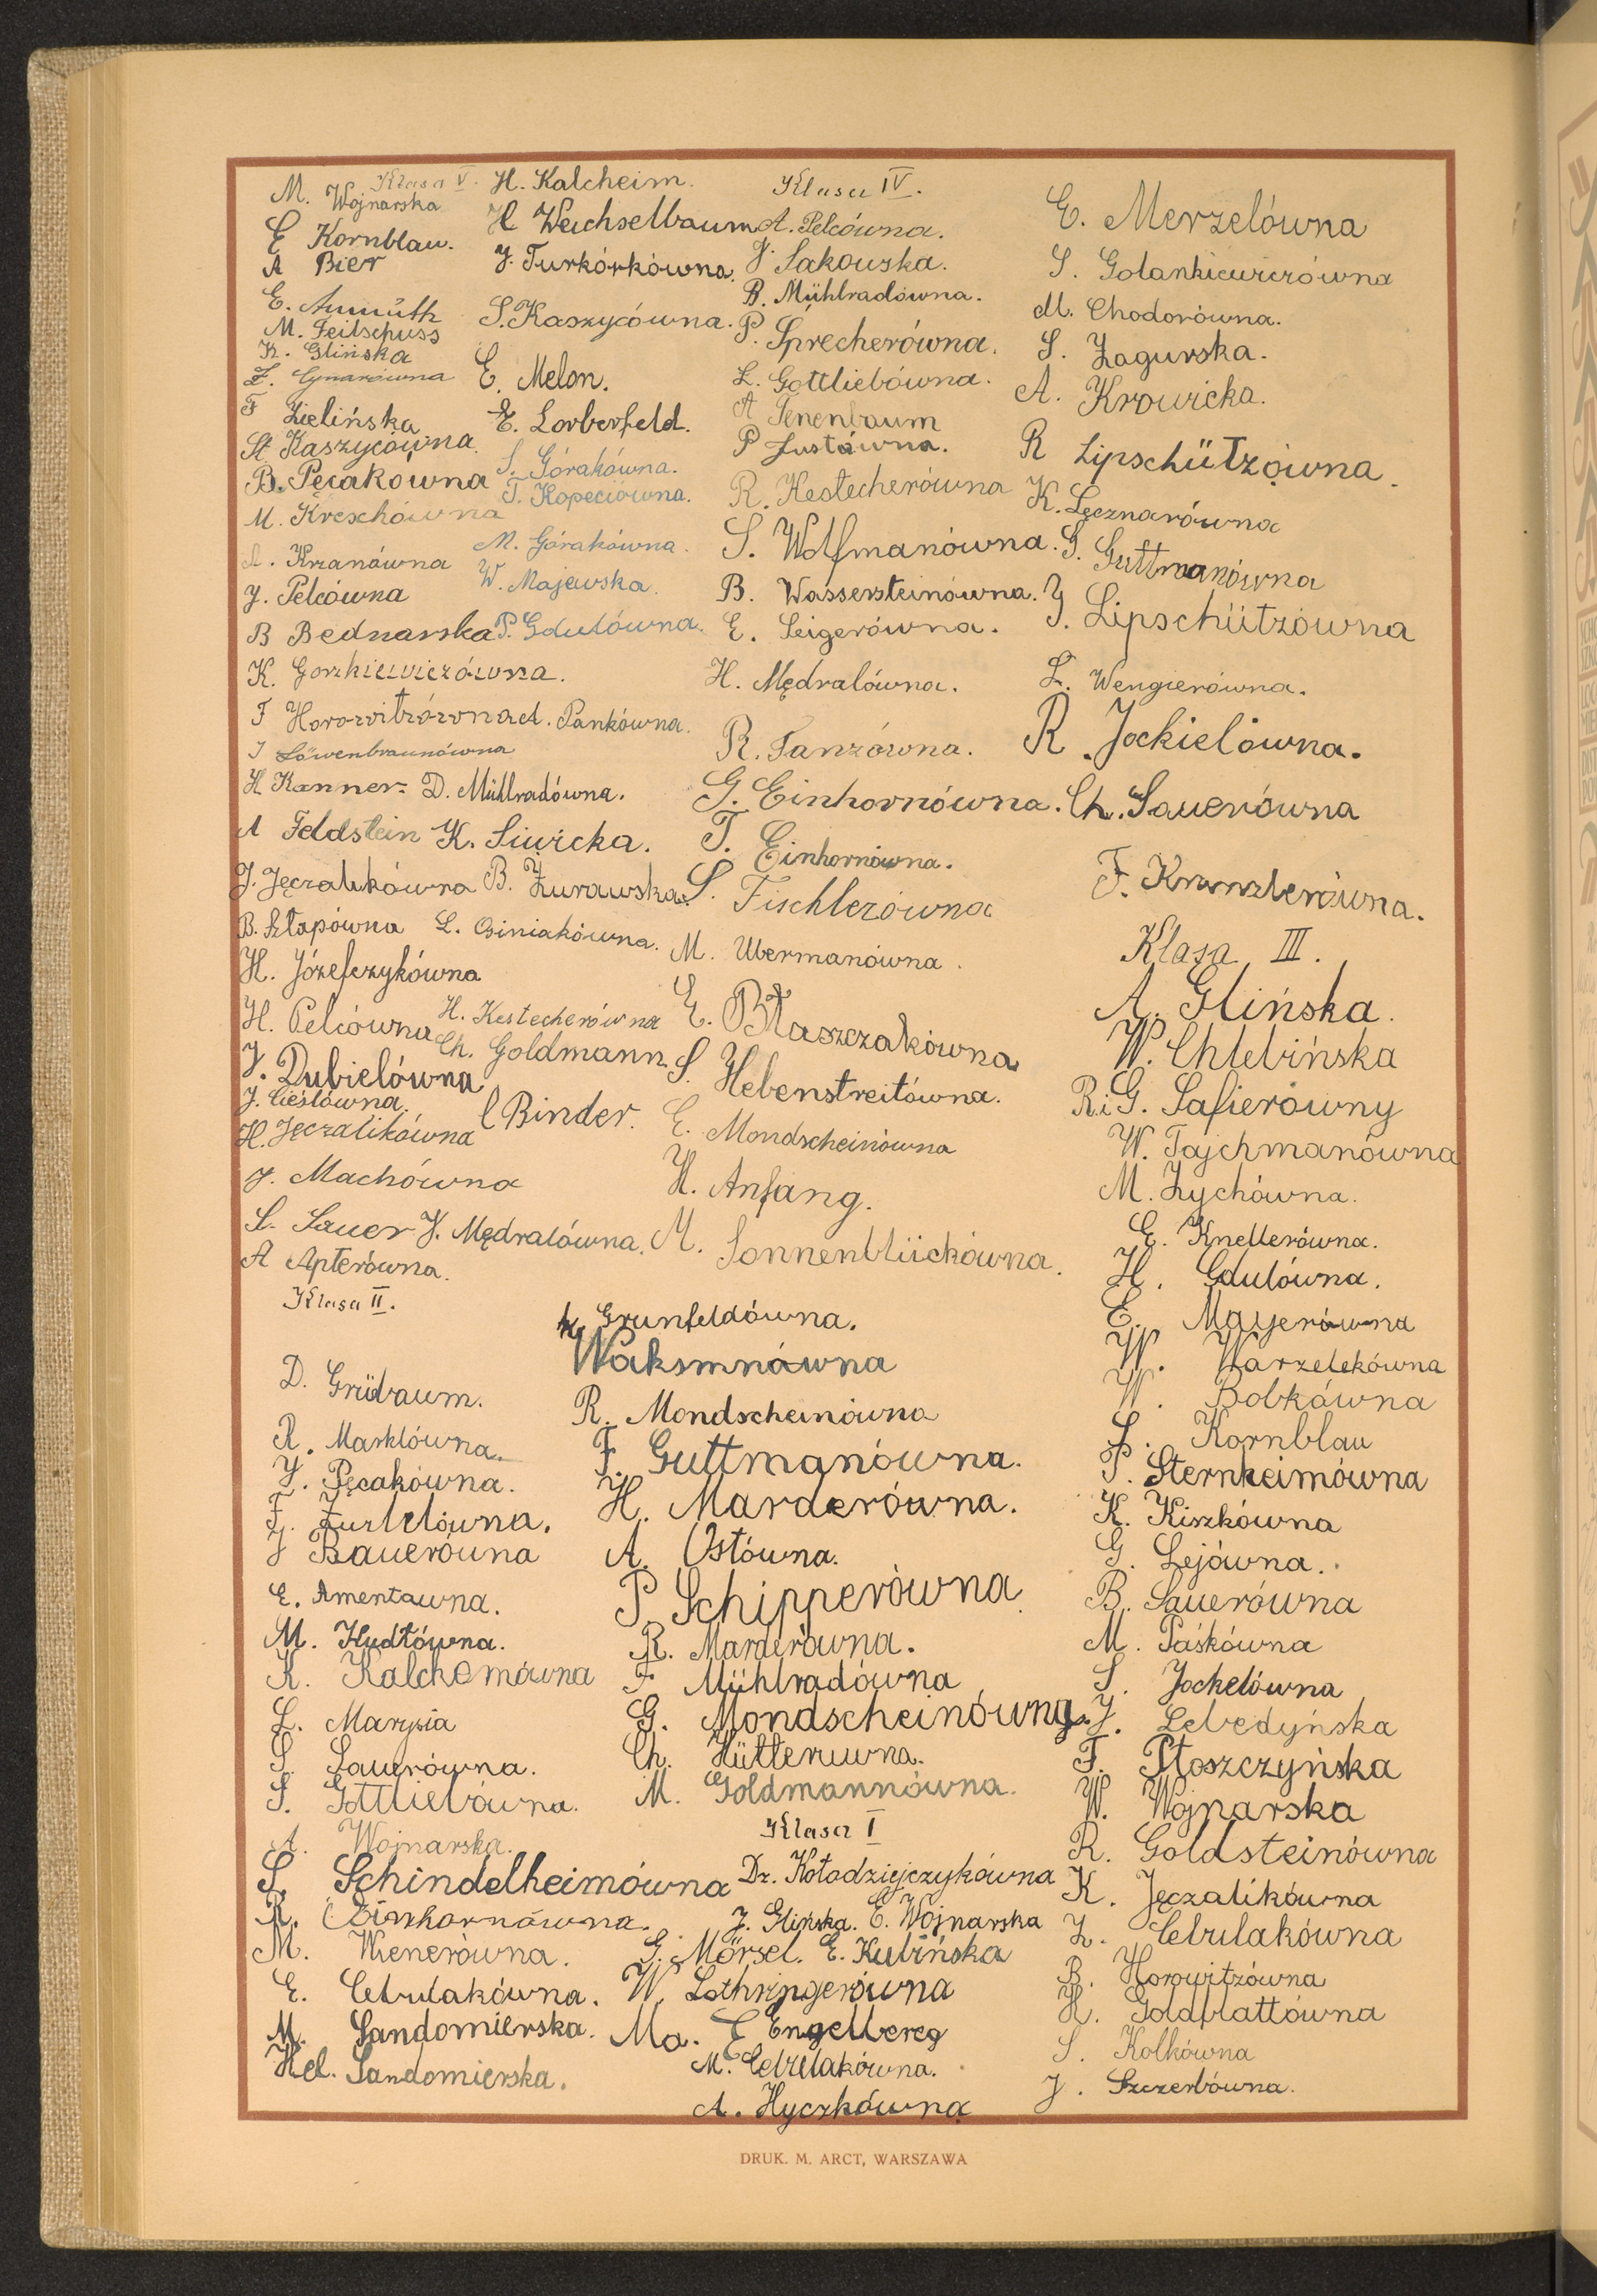 Klasa V.
M. Wojnarska
E Kornblau.
A Bier
E. Anmuth
M. Feitschuss
K. Glińska
Z. Cynarówna
F Zielińska
St. Kaszycówna.
B. Pęcakówna
M. Kreschówna
Kranówna
J. Pelcówna
B Bednarska
K. Gorzkiewiczówna.
F Horowitzówna
I Löwenbraunówna
H Kanner
A Feldstein
J. Jęczalikówna
B. Szłapówna
H. Józefczykówna
H. Pelcówna
J. Dubielówna
J. Cieślówna.
H. Jęczalikówna
J. Machówna
S. Sauer
A Apterówna.
H. Kalcheim.
H Weichselbaum
J. Turkórkówna.
S. Kaszycówna.
E. Melon.
E. Lorberfeld.
S. Górakówna.
T. Kopeciówna.
M. Górakówna.
W. Majewska.
P. Gdulówna.
A. Pankówna.
D. Mühlradówna.
K. Siwicka.
B. Żurawska.
L. Osiniakówna.
H. Kestecherówna
Ch. Goldmann.
C Binder.
J. Mędralówna.
Klasa IV.
A. Pelcówna.
J. Sakowska.
B. Mühlradówna.
P. Sprecherówna.
L. Gottliebówna.
A Tenenbaum
P Justówna.
R. Kestecherówna
S. Wolfmanówna.
B. Wassersteinówna.
E. Seigerówna.
H. Mędralówna.
R. Tanzówna.
G. Einhornówna.
T. Einhornówna.
S. Fischlerówna
M. Ubermanówna.
E. Błaszczakówna
S. Hebenstreitówna.
E. Mondscheinówna
H. Anfang.
M. Sonnenblückówna.
E. Merzelówna
S. Golankiewiczówna
M. Chodorówna.
S. Zagurska.
A. Krowicka.
R Lipschützówna.
K. Łęcznarówna
G. Guttmanówna
J. Lipschützówna
L. Wengierówna.
R. Jockielówna.
Ch. Sauerówna
F. Kranzlerówna.
Klasa III.
A. Glińska.
W. Chlebińska
R. i G. Safierówny
W. Tajchmanówna
M. Zychówna.
E. Knellerówna.
H. Gdulówna.
E. Mayerówna
W. Warzelekówna
W. Bobkówna
S. Kornblau
P. Sternheimówna
K. Kiszkówna
G. Lejówna.
B. Sauerówna
M. Paśkówna
S. Jockelówna
J. Lebedyńska
F. Płoszczyńska
W. Wojnarska
R. Goldsteinówna
K. Jęczalikówna
Z. Cebulakówna
B. Horowitzówna
H. Goldblattówna
S. Kolkówna
J. Szczerbówna.
Klasa II.
D. Grübaum.
R. Masklówna.
J. Pęcakówna.
F. Zurlelówna.
J Bauerówna
E. Amentawna.
M. Hudłówna.
K. Kalchemówna
L. Marysia
S. Sauerówna.
S. Gottliebówna.
A. Wojnarska.
S. Schindelheimówna
R. Einhornówna.
M. Wienerówna.
E. Cebulakówna.
M. Sandomierska.
Hel. Sandomierska.
H. Grunfeldówna.
Waksmnówna
R. Mondscheinówna
F. Guttmanówna.
H. Marderówna.
A. Ostówna.
P Schipperówna
R. Marderówna.
F Mühlradówna
G. Mondscheinówna.
Ch. Hütterówna.
M. Goldmannówna.
Klasa I
Dz. Kołodziejczykówna
J. Glińska. E. Wojnarska
G. Mörsel. E. Kubińska
W. Lothringerówna
Ma. E Engelbereg
M. Cebulakówna.
A. Hyczkówna
DRUK. M. ARCT, WARSZAWA